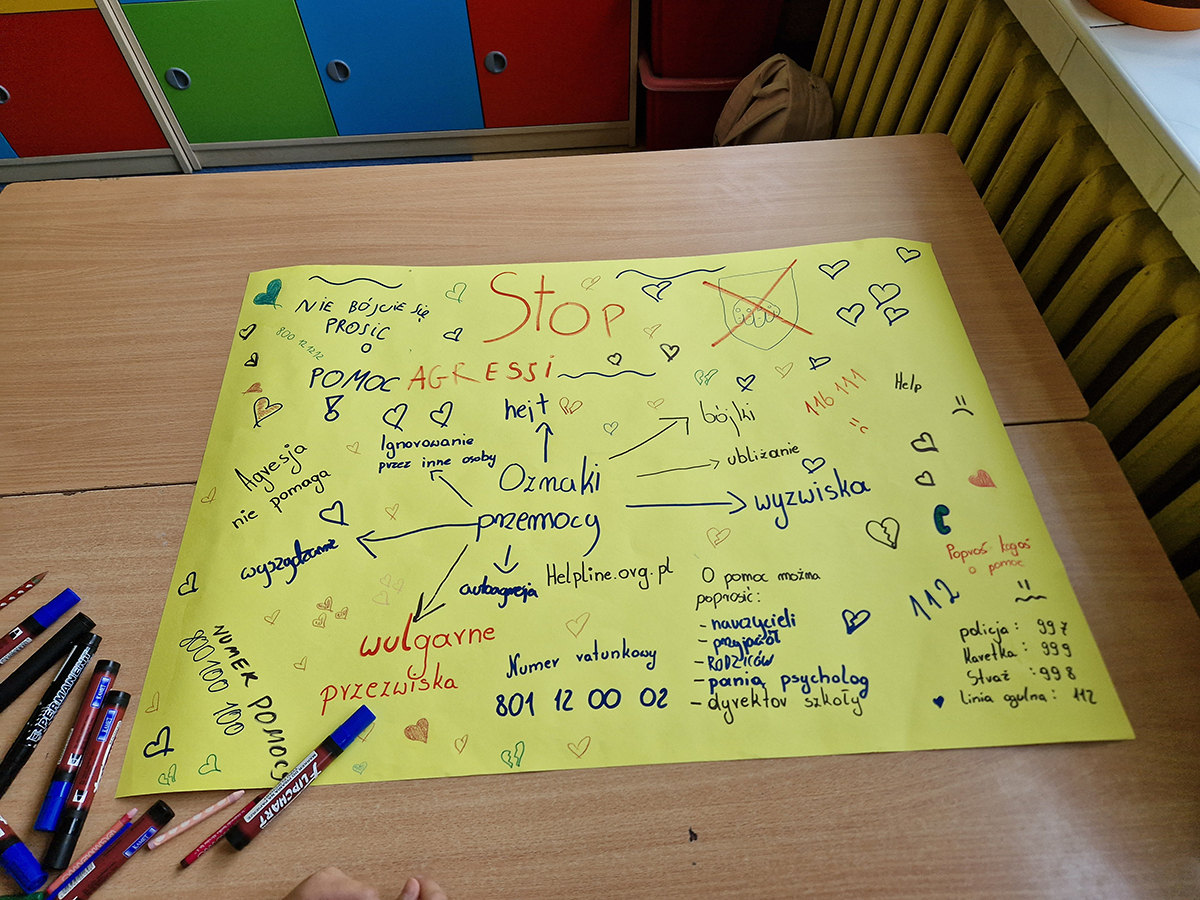 NIE BÓJCIE SIĘ
PROSIĆ
O
POMOC
!
800 12 12 12
STOP
AGRESSI
116 111
Help
hejt
bójki
Ignorowanie
przez inne osoby
ubliżanie
Agresja
nie pomaga
Oznaki
przemocy
wyzwiska
wyszydzanie
autoagresja
Helpline.org.pl
wulgarne
przezwiska
O pomoc można
poprosić:
- nauczycieli
- przyjaciół
- RODZICÓW
- panią psycholog
- dyrektor szkoły
Numer ratunkowy
801 12 00 02
NUMER POMOCY
800 100 100
Poproś kogoś
o pomoc
112
policja: 997
Karetka: 999
Straż: 998
linia ogulna: 112
PERMANENT
FLIPCHART